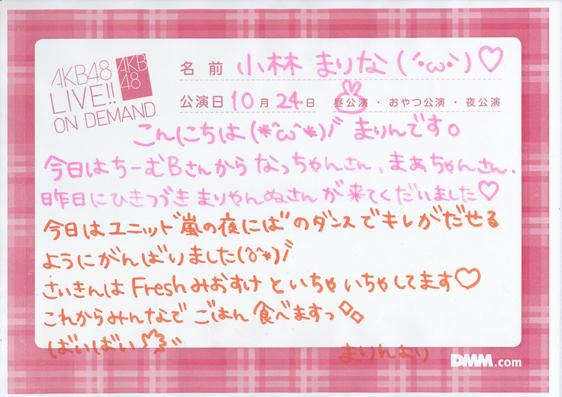 AKB48
LIVE!!
ON DEMAND
AKB
48
名前 小林 まりな(´・ω・`)♡
公演日 10月24日 昼公演・おやつ公演・夜公演
こんにちは(*^ω^*)ﾉ まりんです。
今日はちーむBさんから なっちゃんさん、まぁちゃんさん、
昨日にひきつづき まりやんぬさんが来てくだいました♡
今日はユニット"嵐の夜には"のダンスでキレがだせる
ようにがんばりました(^o^*)ﾉ
さいきんは Freshみおすけ といちゃいちゃしてます♡
これからみんなで ごはん 食べますっ◇◇
ばいばい
まりんより
DMM.com